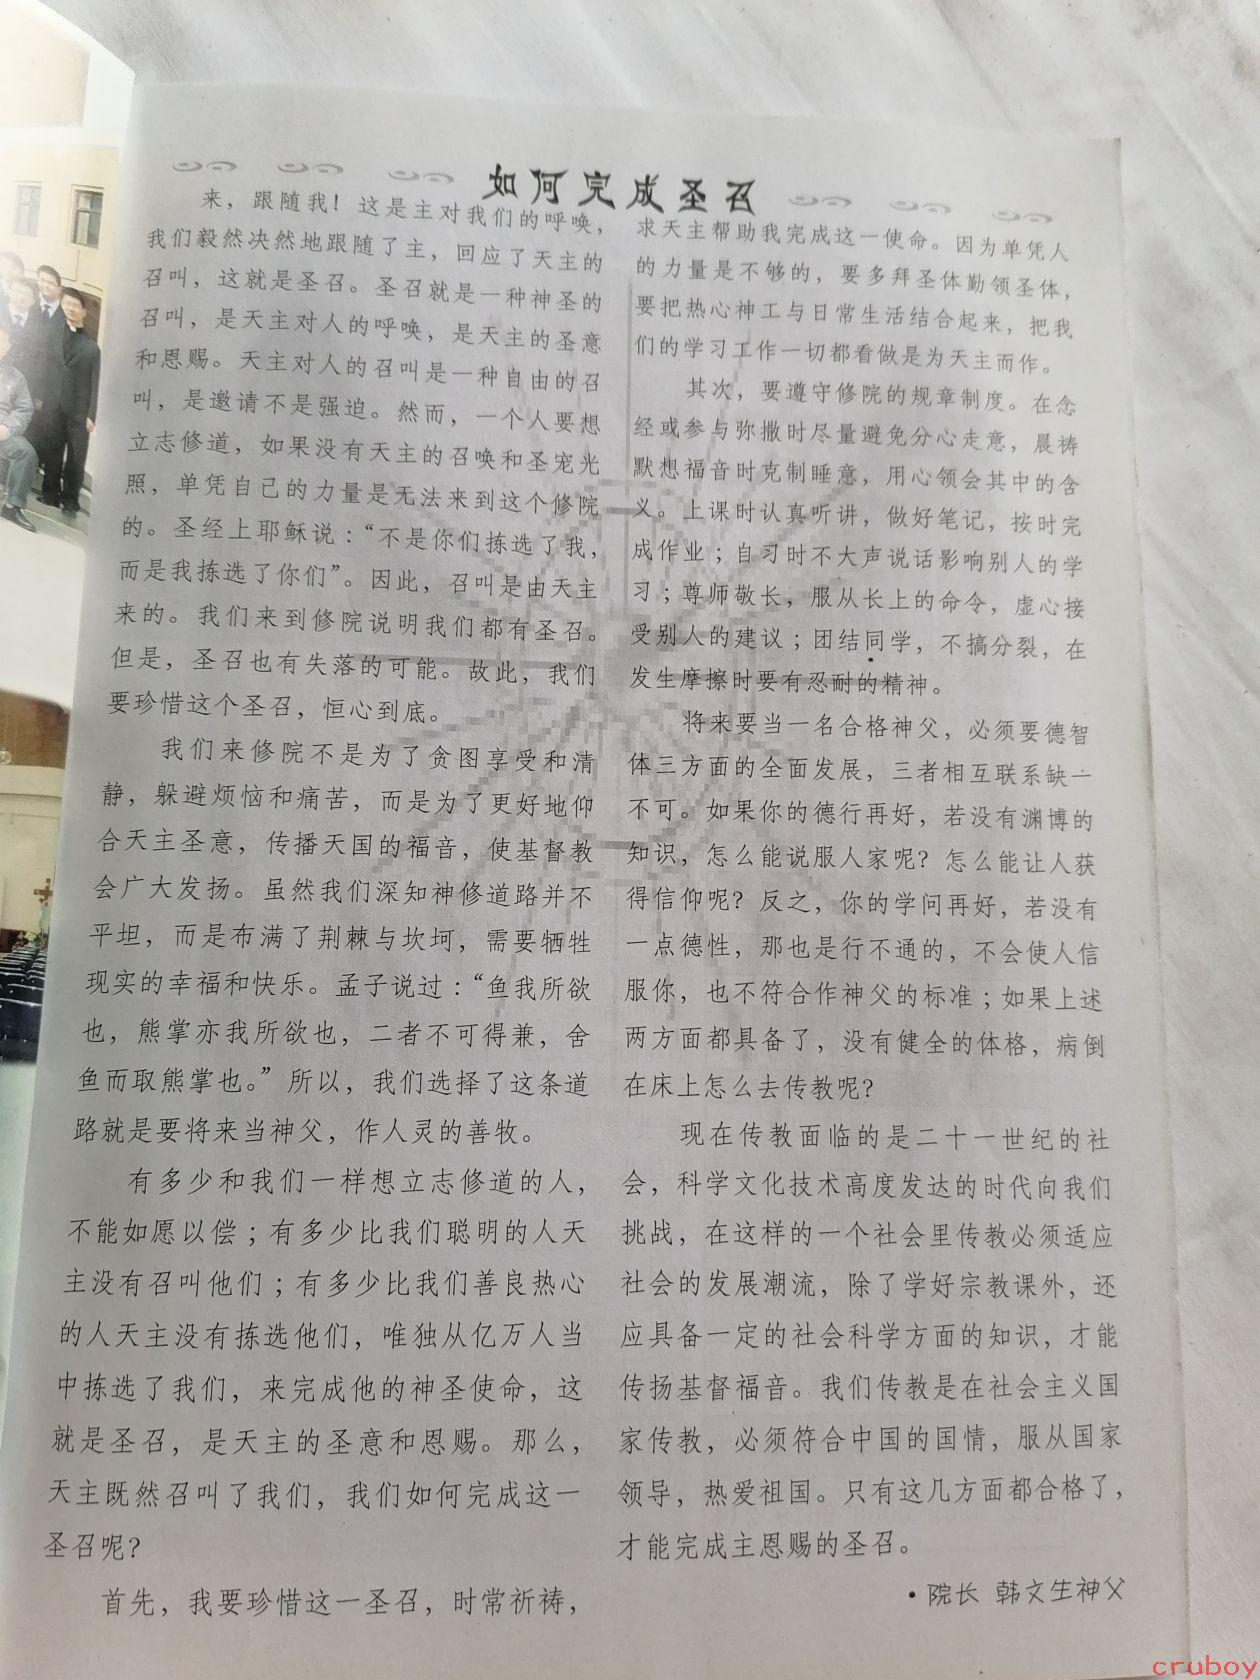 如何完成圣召
来，跟随我！这是主对我们的呼唤，
我们毅然决然地跟随了主，回应了天主的
召叫，这就是圣召。圣召就是一种神圣的
召叫，是天主对人的呼唤，是天主的圣意
和恩赐。天主对人的召叫是一种自由的召
叫，是邀请不是强迫。然而，一个人要想
立志修道，如果没有天主的召唤和圣宠光
照，单凭自己的力量是无法来到这个修院
的。圣经上耶稣说：“不是你们拣选了我，
而是我拣选了你们”。因此，召叫是由天主
来的。我们来到修院说明我们都有圣召。
但是，圣召也有失落的可能。故此，我们
要珍惜这个圣召，恒心到底。
我们来修院不是为了贪图享受和清
静，躲避烦恼和痛苦，而是为了更好地仰
合天主圣意，传播天国的福音，使基督教
会广大发扬。虽然我们深知神修道路并不
平坦，而是布满了荆棘与坎坷，需要牺牲
现实的幸福和快乐。孟子说过：“鱼我所欲
也，熊掌亦我所欲也，二者不可得兼，舍
鱼而取熊掌也。”所以，我们选择了这条道
路就是要将来当神父，作人灵的善牧。
有多少和我们一样想立志修道的人，
不能如愿以偿；有多少比我们聪明的人天
主没有召叫他们；有多少比我们善良热心
的人天主没有拣选他们，唯独从亿万人当
中拣选了我们，来完成他的神圣使命，这
就是圣召，是天主的圣意和恩赐。那么，
天主既然召叫了我们，我们如何完成这一
圣召呢？
首先，我要珍惜这一圣召，时常祈祷，
求天主帮助我完成这一使命。因为单凭人
的力量是不够的，要多拜圣体勤领圣体，
要把热心神工与日常生活结合起来，把我
们的学习工作一切都看做是为天主而作。
其次，要遵守修院的规章制度。在念
经或参与弥撒时尽量避免分心走意，晨祷
默想福音时克制睡意，用心领会其中的含
义。上课时认真听讲，做好笔记，按时完
成作业；自习时不大声说话影响别人的学
习；尊师敬长，服从长上的命令，虚心接
受别人的建议；团结同学，不搞分裂，在
发生摩擦时要有忍耐的精神。
将来要当一名合格神父，必须要德智
体三方面的全面发展，三者相互联系缺一
不可。如果你的德行再好，若没有渊博的
知识，怎么能说服人家呢？怎么能让人获
得信仰呢？反之，你的学问再好，若没有
一点德性，那也是行不通的，不会使人信
服你，也不符合作神父的标准；如果上述
两方面都具备了，没有健全的体格，病倒
在床上怎么去传教呢？
现在传教面临的是二十一世纪的社
会，科学文化技术高度发达的时代向我们
挑战，在这样的一个社会里传教必须适应
社会的发展潮流，除了学好宗教课外，还
应具备一定的社会科学方面的知识，才能
传扬基督福音。我们传教是在社会主义国
家传教，必须符合中国的国情，服从国家
领导，热爱祖国。只有这几方面都合格了，
才能完成主恩赐的圣召。
·院长 韩文生神父
cruboy